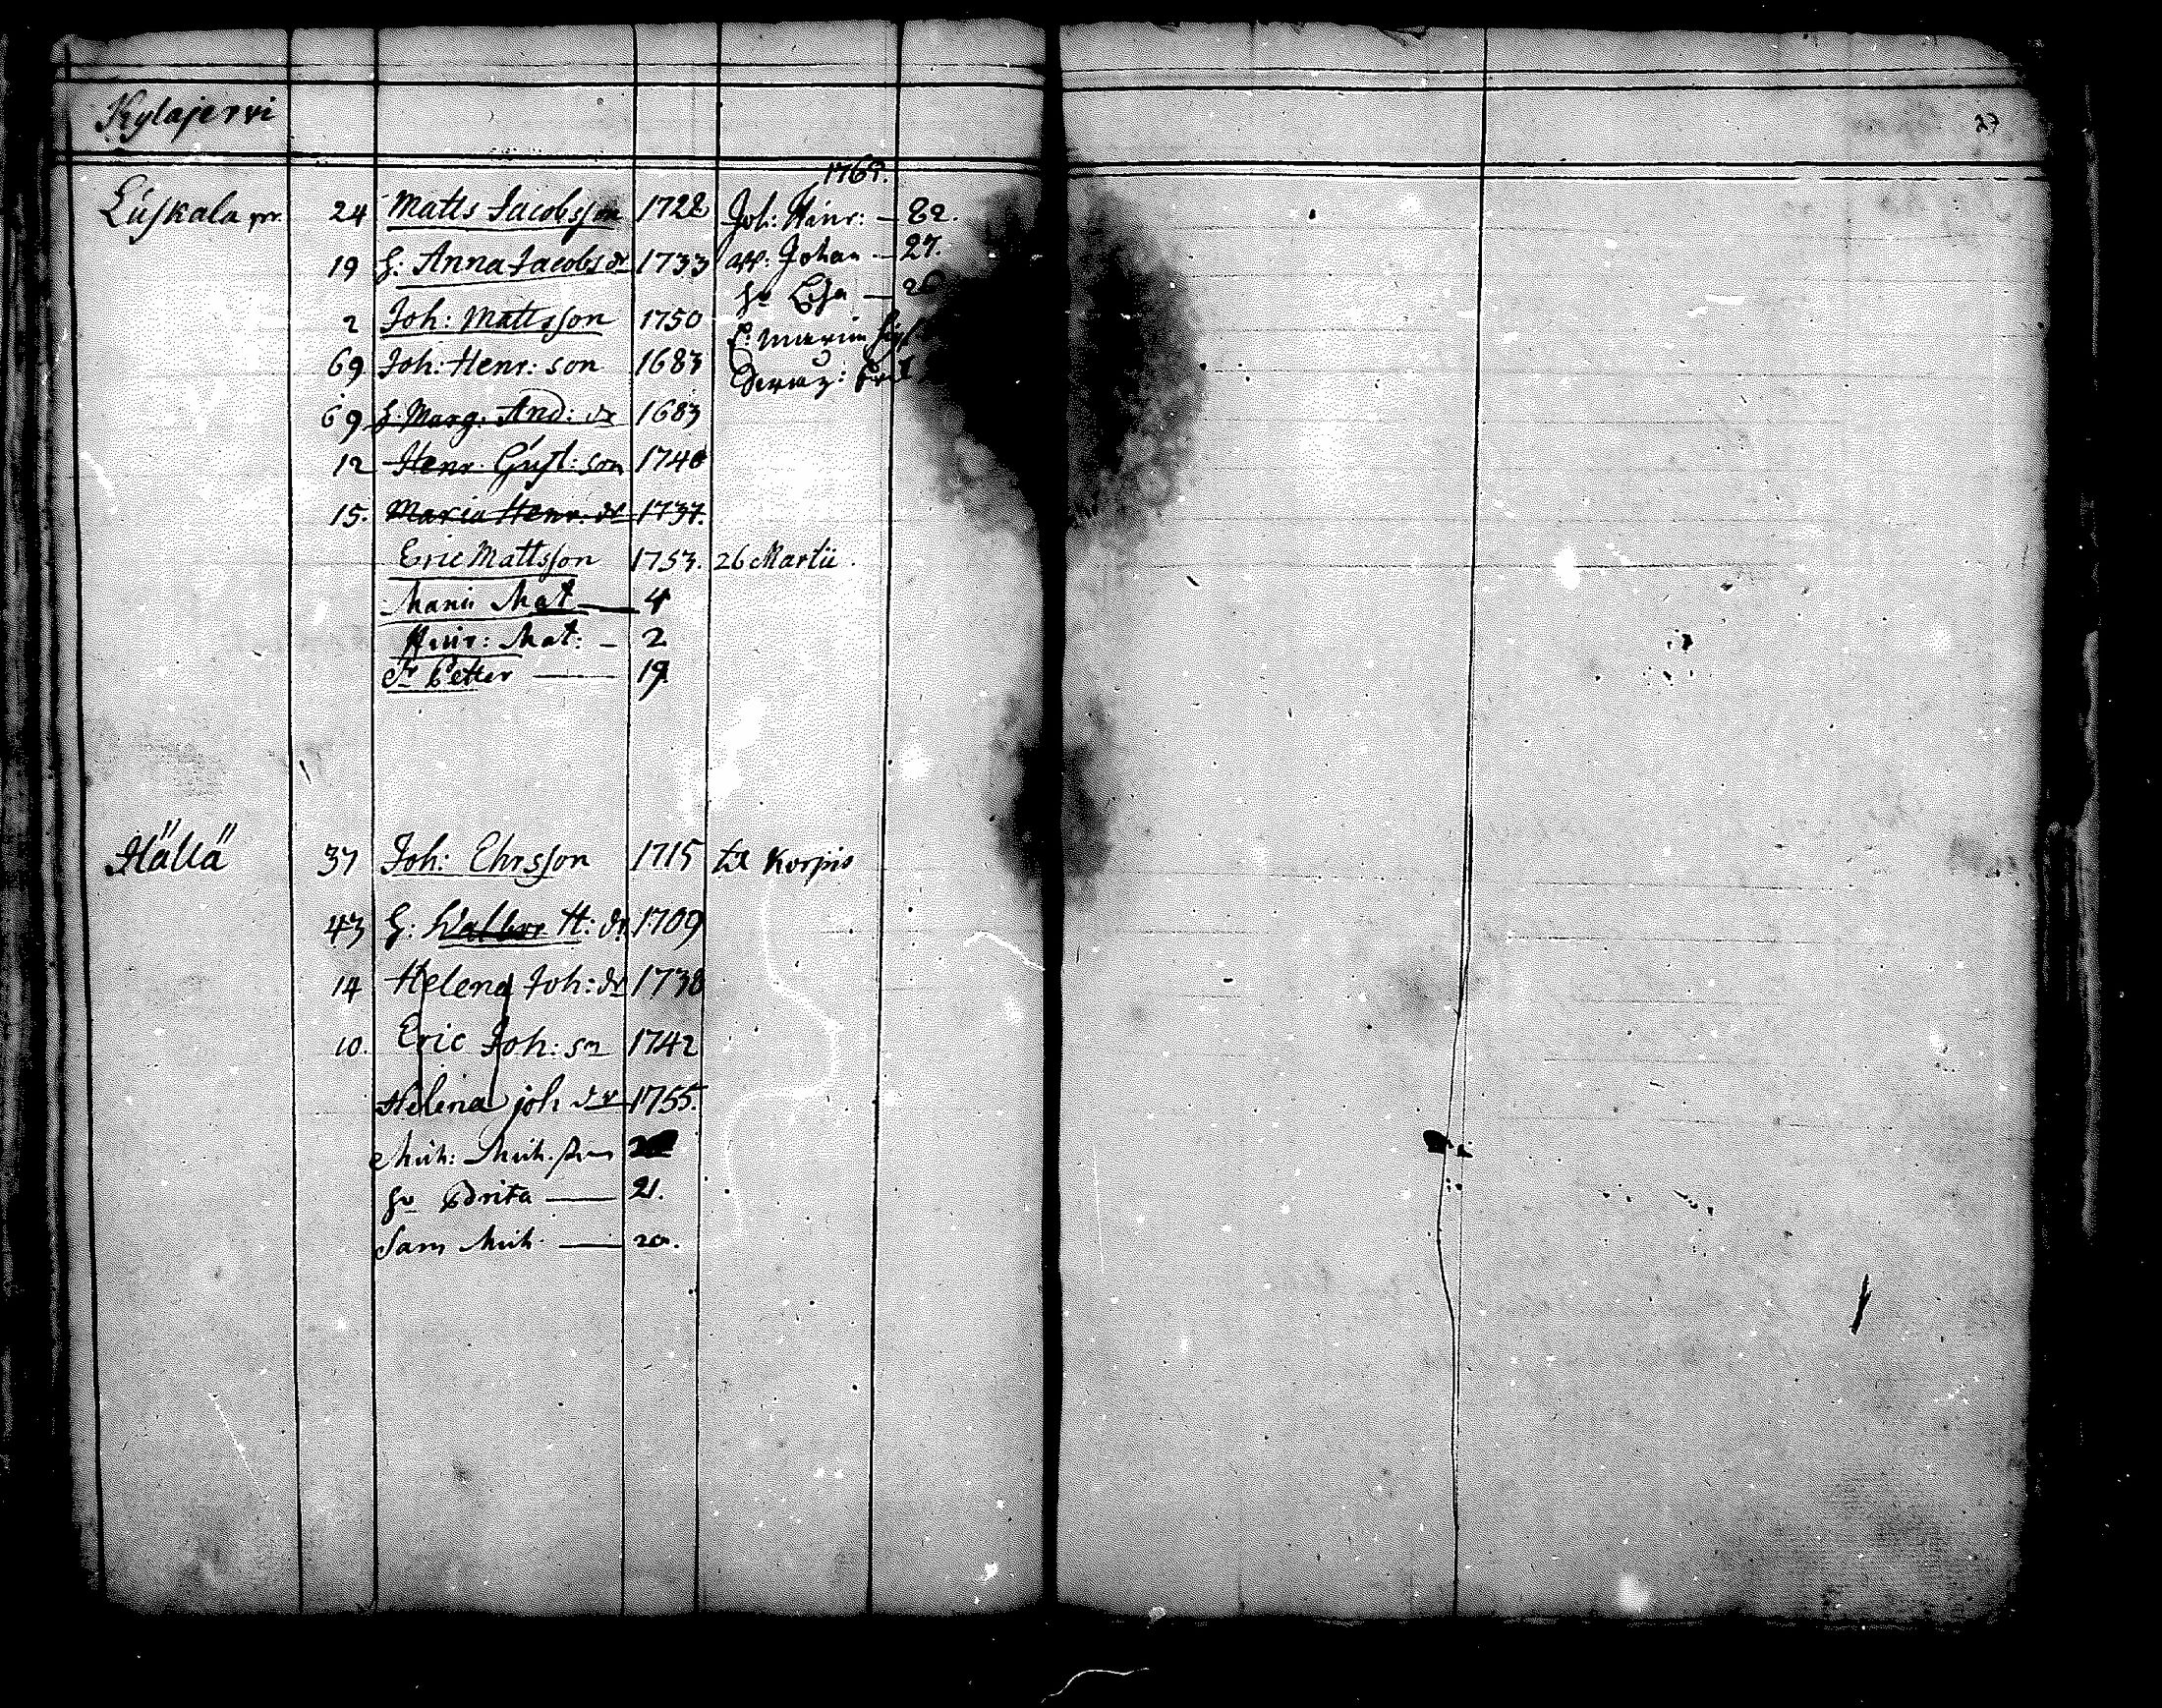 Kylajervi
27
1769.
Luskala 24 Matts Jacobsson 1728 Joh: Hinr: — 82.
19 h: Anna Jacobs dr 1733 Johan — 27.
hu Lisa —
2 Joh: Mattsson 1750
E: Maria
69 Joh: Henr: son 1683
69 h. Marg: And: dr 1683
12 Henr. Gust: son 1740
15. Maria Henr. dr 1737.
Eric Mattsson 1753. 26 Martii.
Maria Mat — 4
Hinr: Mat: — 2
Petter — 19
Hällä 37 Joh: Ehrsson 1715 til Korpis
43 h: Walbor H: dr 1709
14 Helena Joh: dr 1738
10. Eric Joh: sn 1742
Helena joh dr 1755.
Mich: Mich.
hu Brita — 21.
Sam Mich. — 20.